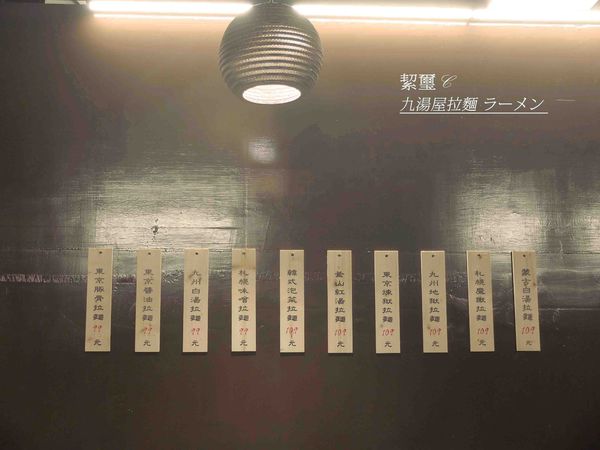 絜璽 C
九湯屋拉麵 ラーメン
東京豚骨拉麵 99 元
東京醬油拉麵 99 元
九州白湯拉麵 99 元
札幌味噌拉麵 99 元
韓式泡菜拉麵 109 元
釜山紅湯拉麵 109 元
東京煉獄拉麵 109 元
九州地獄拉麵 109 元
札幌魔獄拉麵 109 元
蒙古白湯拉麵 109 元